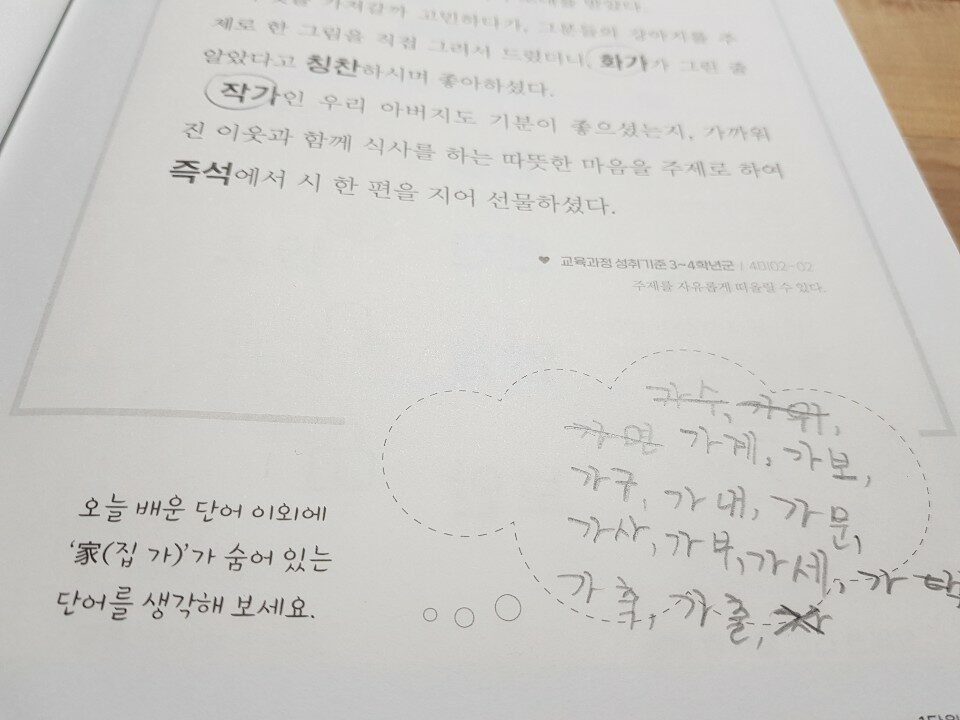 가져갈까 고민하다가, 그분들의 강아지를 주
제로 한 그림을 직접 그려서 드렸더니, 화가가 그린 줄
알았다고 칭찬하시며 좋아하셨다.
작가인 우리 아버지도 기분이 좋으셨는지, 가까워
진 이웃과 함께 식사를 하는 따뜻한 마음을 주제로 하여
즉석에서 시 한 편을 지어 선물하셨다.
♥ 교육과정 성취기준 3~4학년군 | 4미02-02
주제를 자유롭게 떠올릴 수 있다.
오늘 배운 단어 이외에
‘家(집 가)’가 숨어 있는
단어를 생각해 보세요.
가수, 가위,
가면 가계, 가보,
가구, 가내, 가문,
가사, 가부, 가세, 가
가축, 가출,